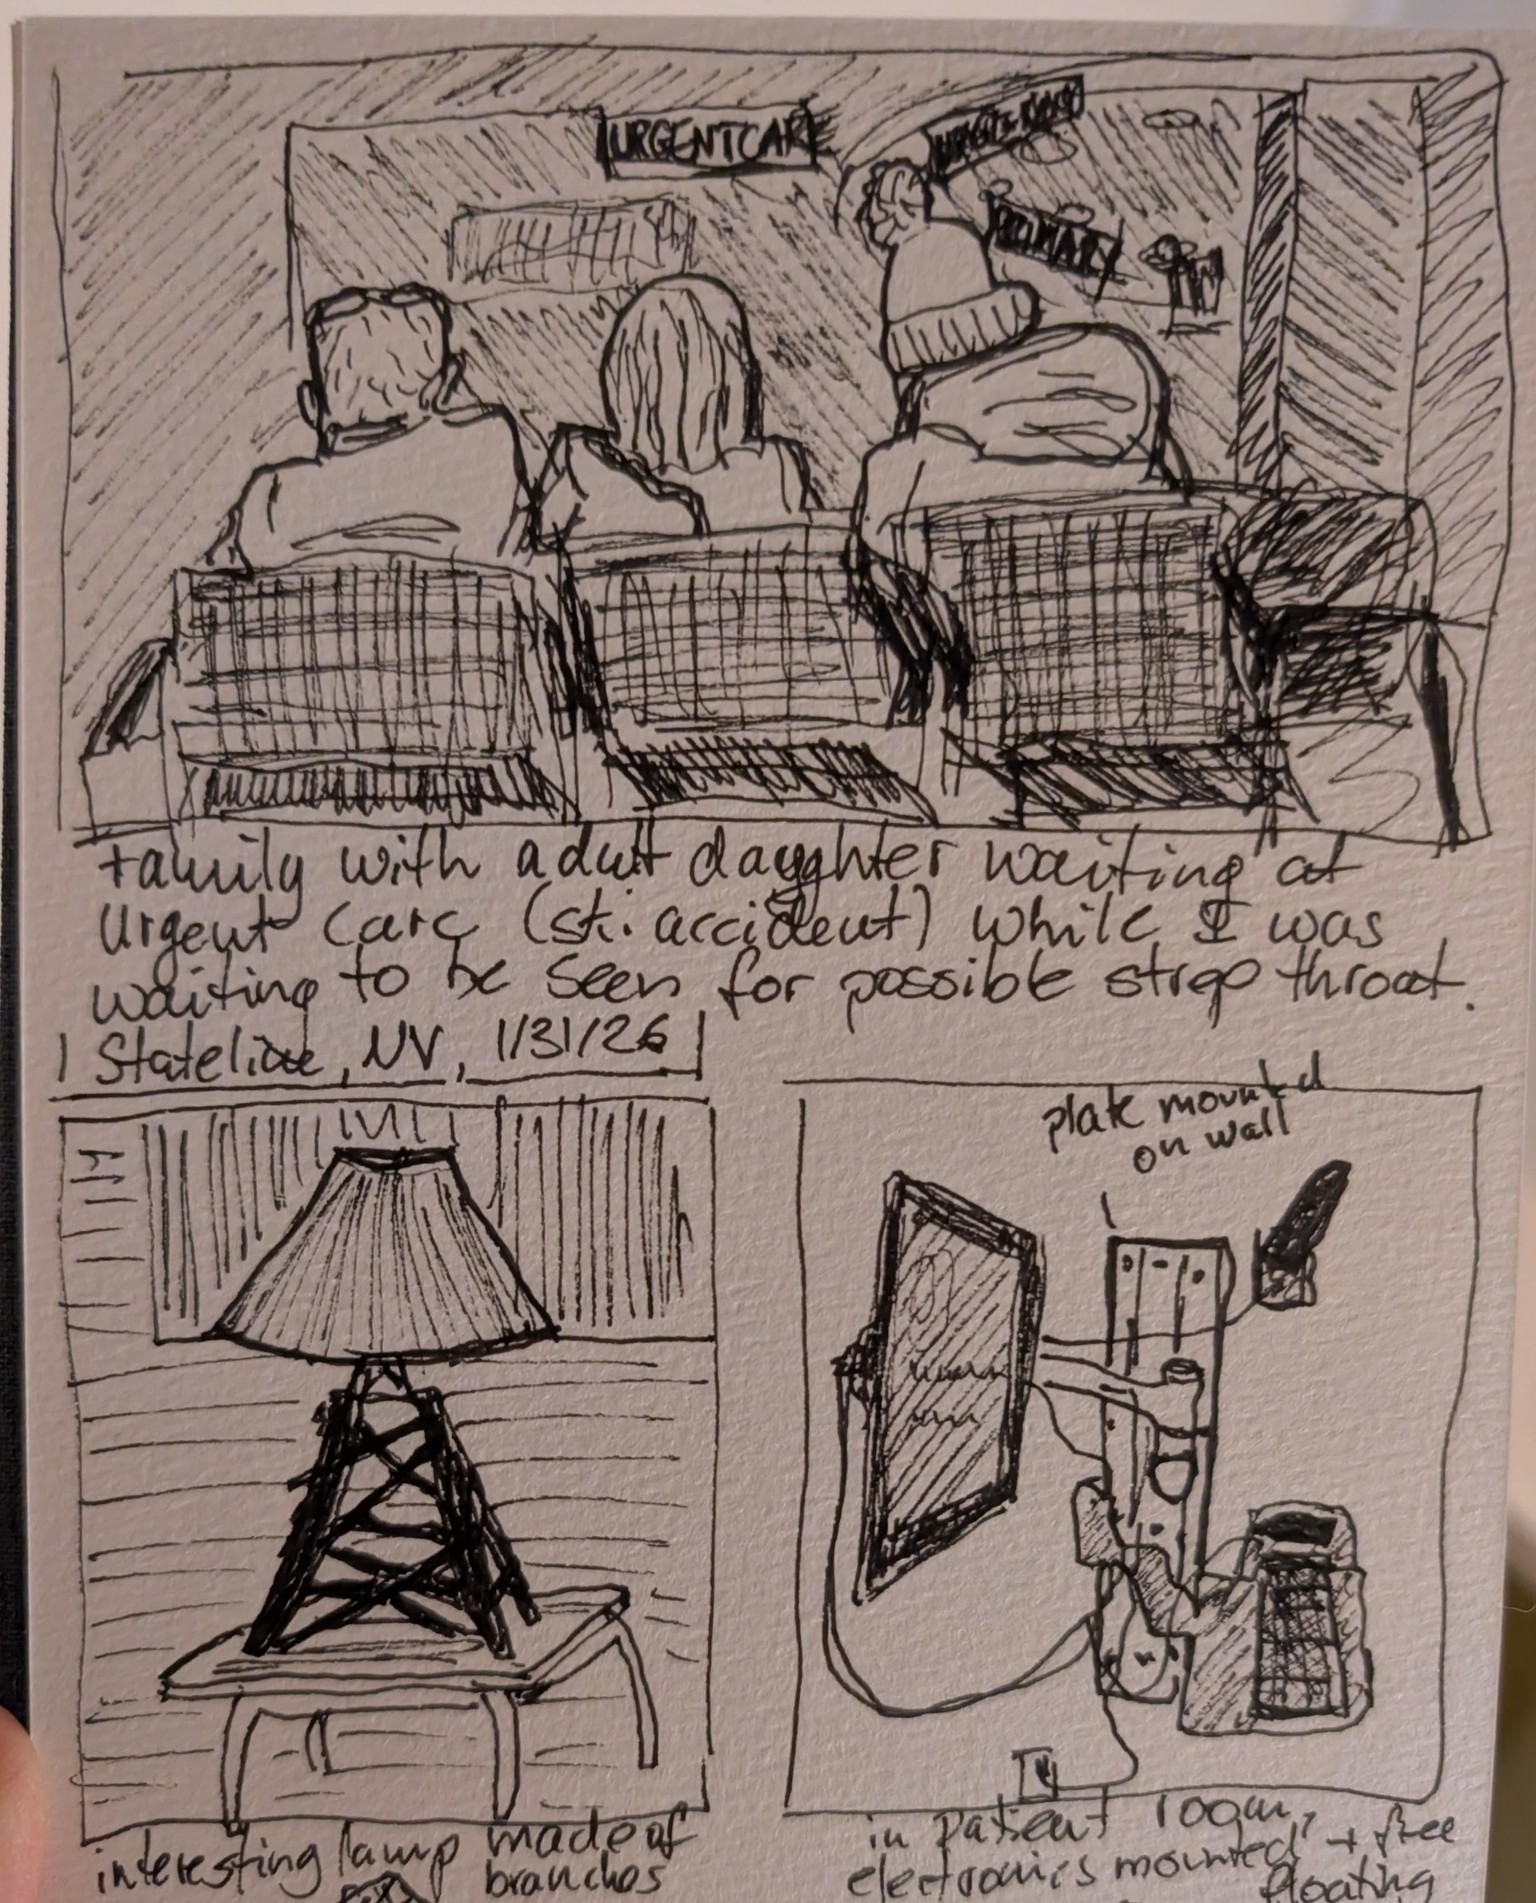 URGENT CARE
PRIMARY
Family with adult daughter waiting at
Urgent Care (ski accident) while I was
waiting to be seen for possible strep throat.
Stateline, NV, 1/31/26
plate mounted
on wall
interesting lamp made of
branches
in patient room,
electronics mounted + free
floating